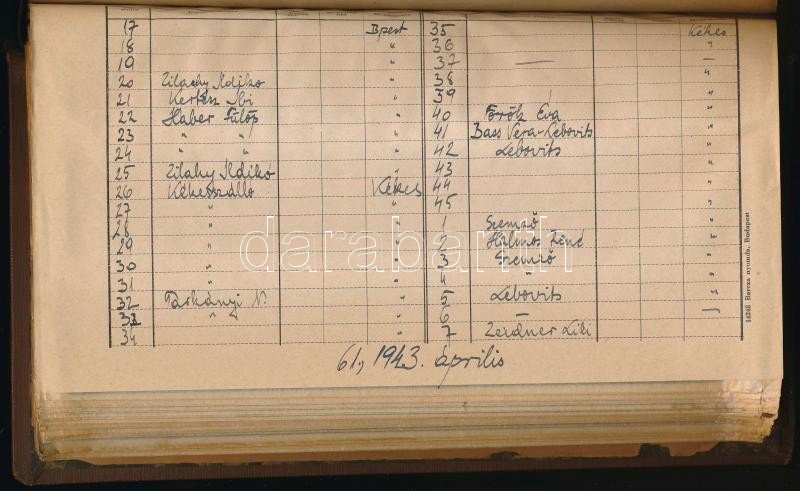 17 Bpest
18 "
19 "
20 Zilachy Ildikó "
21 Kertész Ibi "
22 Haber Fülöp "
23 " " "
24 " " "
25 Zilahy Ildikó "
26 Kékesszálló Kékes
27 " "
28 " "
29 " "
30 " "
31 " "
32 Tarkányi N. "
33 " "
34 "
35 Kékes
36 "
37 —
38 "
39 "
40 Török Éva "
41 Bass Vera-Lebovits "
42 Lebovits "
43 "
44 "
45 "
1 Szemző "
2 Halmos "
3 Szemző "
4 " "
5 Lebovits "
6 —
7 Zeidner Lili
61, 1943. április
14248 Barcza nyomda, Budapest
darabanth